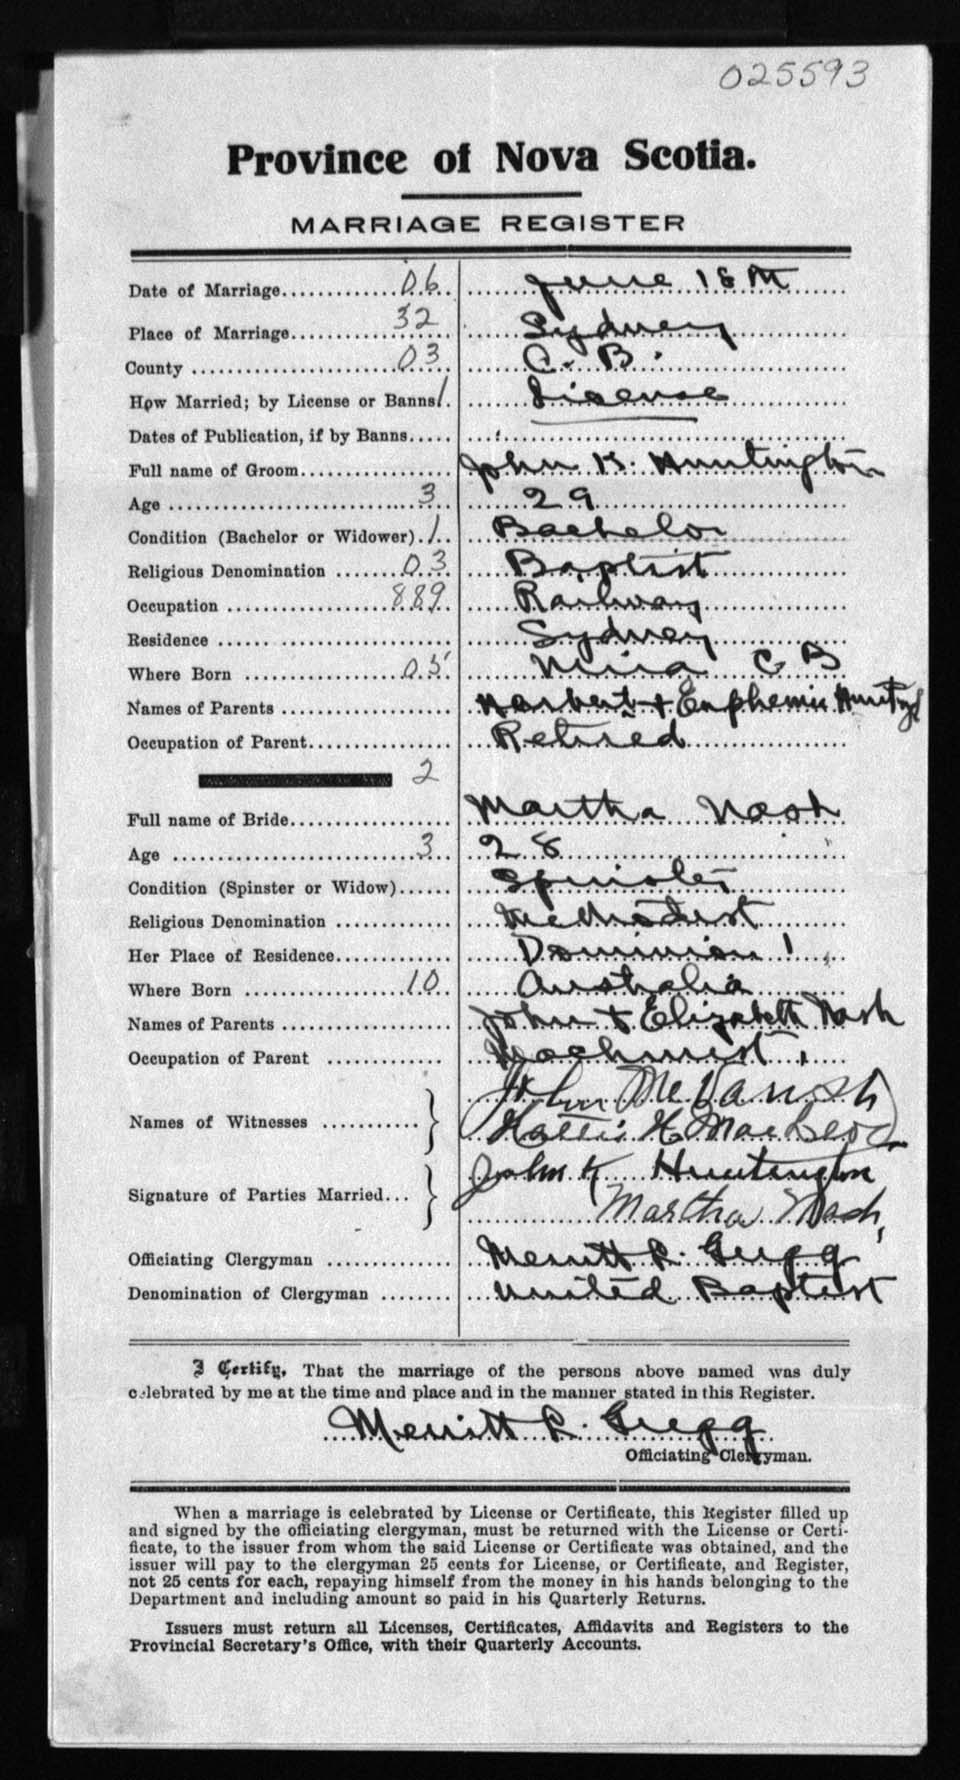 025593
Province of Nova Scotia.
MARRIAGE REGISTER
Date of Marriage 06 June 18th
Place of Marriage 32 Sydney
County 03 C. B.
How Married; by License or Banns 1 License
Dates of Publication, if by Banns
Full name of Groom John K. Huntington
Age 3 29
Condition (Bachelor or Widower) 1 Bachelor
Religious Denomination 03 Baptist
Occupation 889 Railway
Residence Sydney
Where Born 05 Mira C B
Names of Parents Herbert + Euphemia
Occupation of Parent Retired
2
Full name of Bride Martha Nash
Age 3 28
Condition (Spinster or Widow) Spinster
Religious Denomination Methodist
Her Place of Residence Dominion 1
Where Born 10 Australia
Names of Parents John + Elizabeth Nash
Occupation of Parent Machinist
Names of Witnesses John
Hattie H MacLeod
Signature of Parties Married John K Huntington
Martha Nash
Officiating Clergyman Merritt L. Gregg
Denomination of Clergyman United Baptist
I Certify, That the marriage of the persons above named was duly
celebrated by me at the time and place and in the manner stated in this Register.
Merritt L. Gregg
Officiating Clergyman.
When a marriage is celebrated by License or Certificate, this Register filled up
and signed by the officiating clergyman, must be returned with the License or Certi-
ficate, to the issuer from whom the said License or Certificate was obtained, and the
issuer will pay to the clergyman 25 cents for License, or Certificate, and Register,
not 25 cents for each, repaying himself from the money in his hands belonging to the
Department and including amount so paid in his Quarterly Returns.
Issuers must return all Licenses, Certificates, Affidavits and Registers to the
Provincial Secretary's Office, with their Quarterly Accounts.